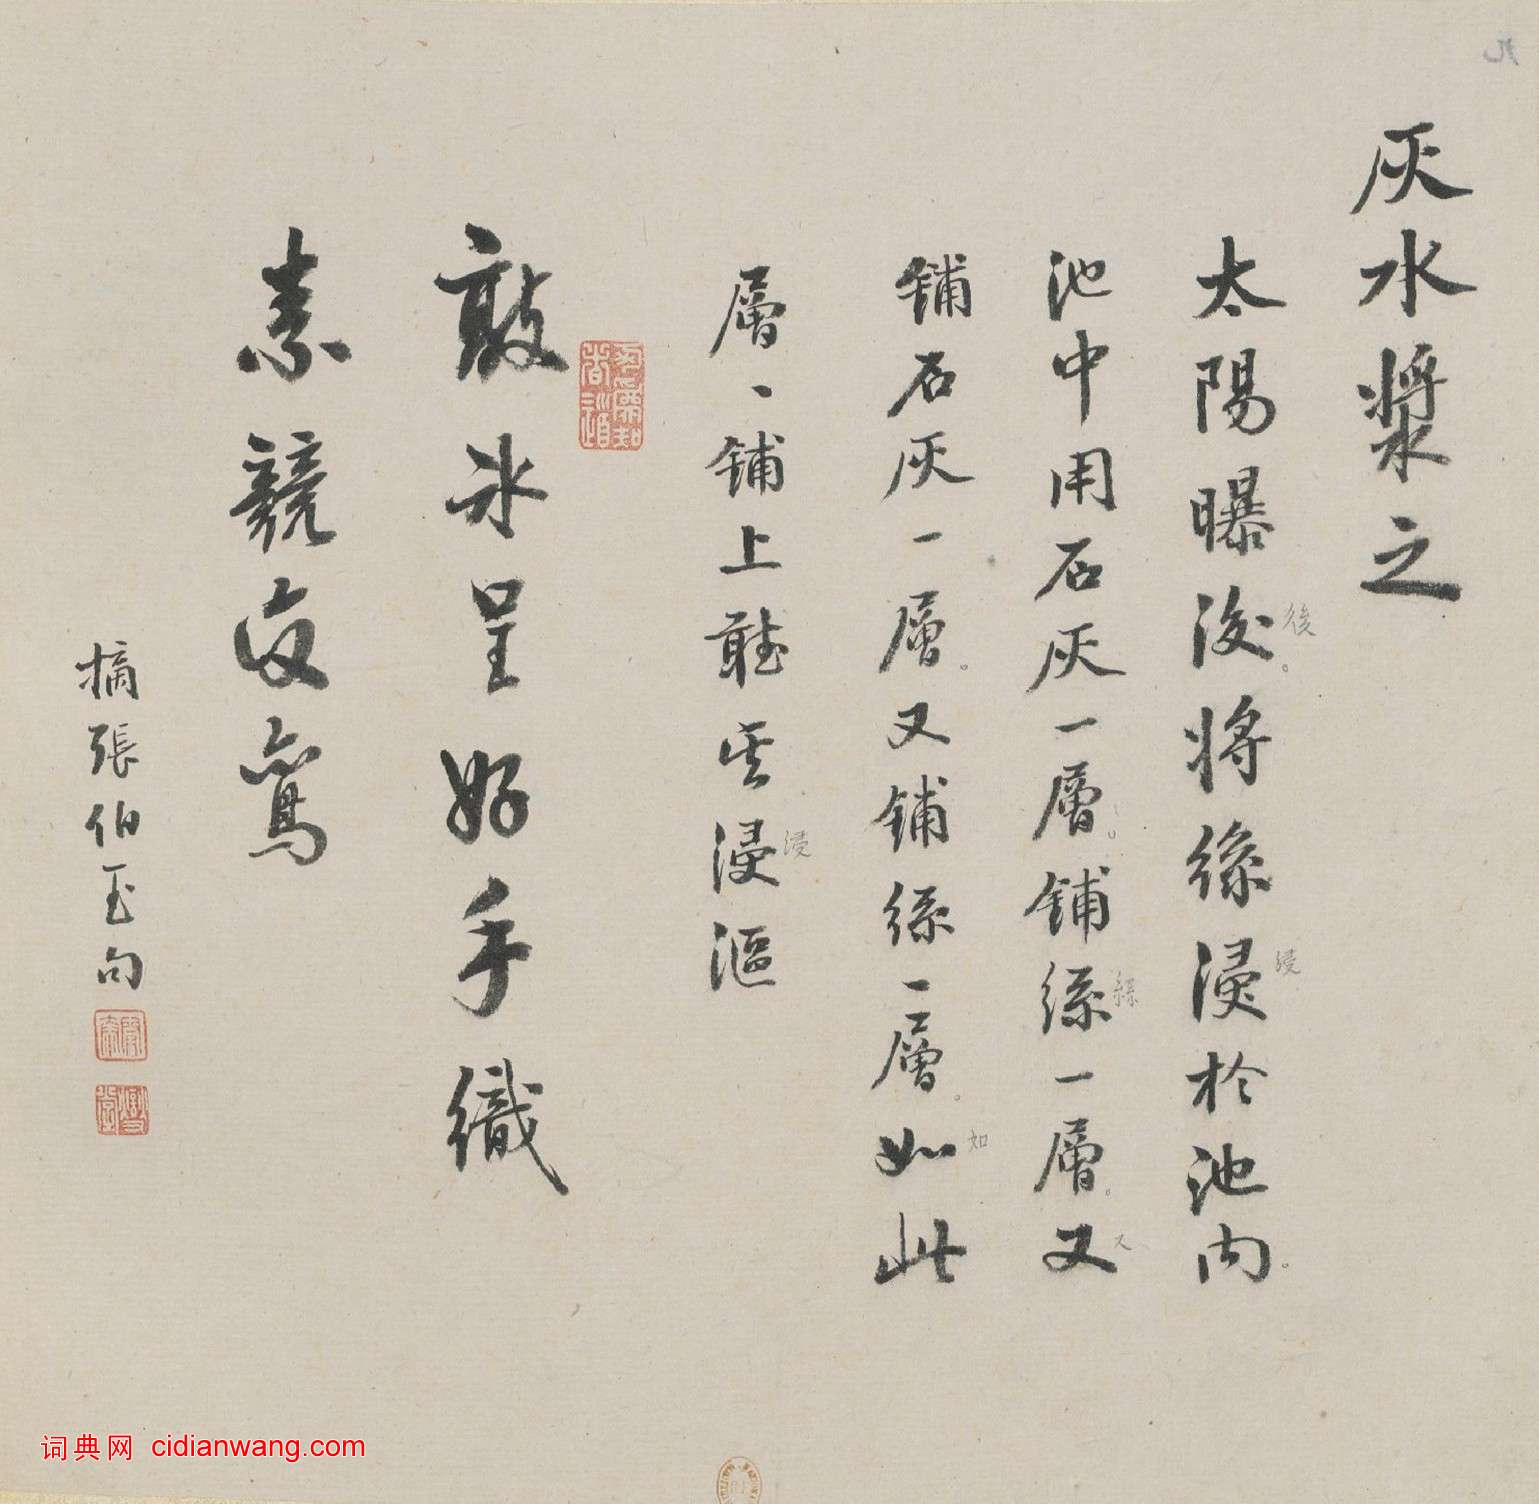 九
灰水漿之
太陽曝後。將絲浸於池內。
後
浸
池中用石灰一層。鋪絲一層。又
絲
又
鋪石灰一層。又鋪絲一層。如此
如
層、鋪上聽其浸漚
浸
敲氷呈好手織
素競交鴛
摘張伯玉句
词典网 cidianwang.com